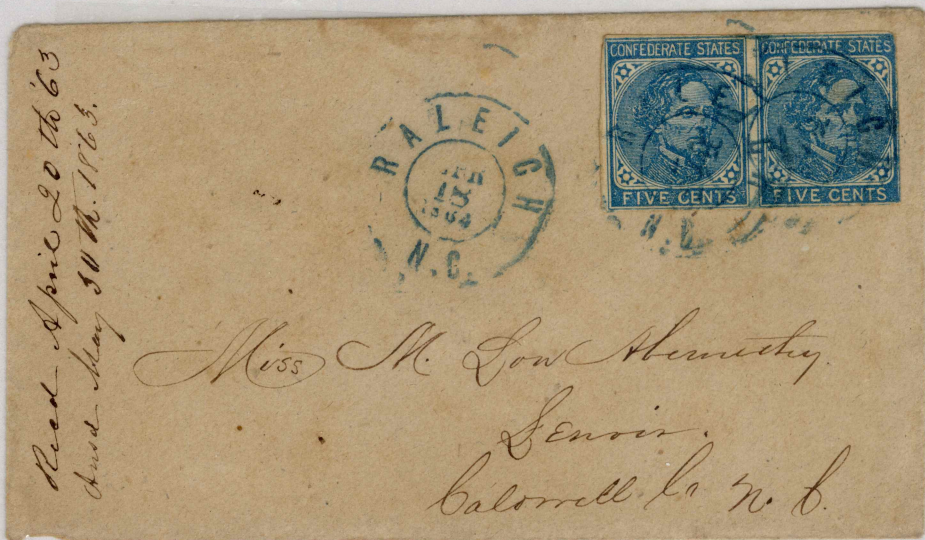 Recd April 20th '63
Ansd May 30th. 1863.
RALEIGH
APR
1864
N.C.
CONFEDERATE STATES
FIVE CENTS
CONFEDERATE STATES
FIVE CENTS
N.C.
Miss M. Lou Abernethy.
Lenoir.
Caldwell Co N. C.